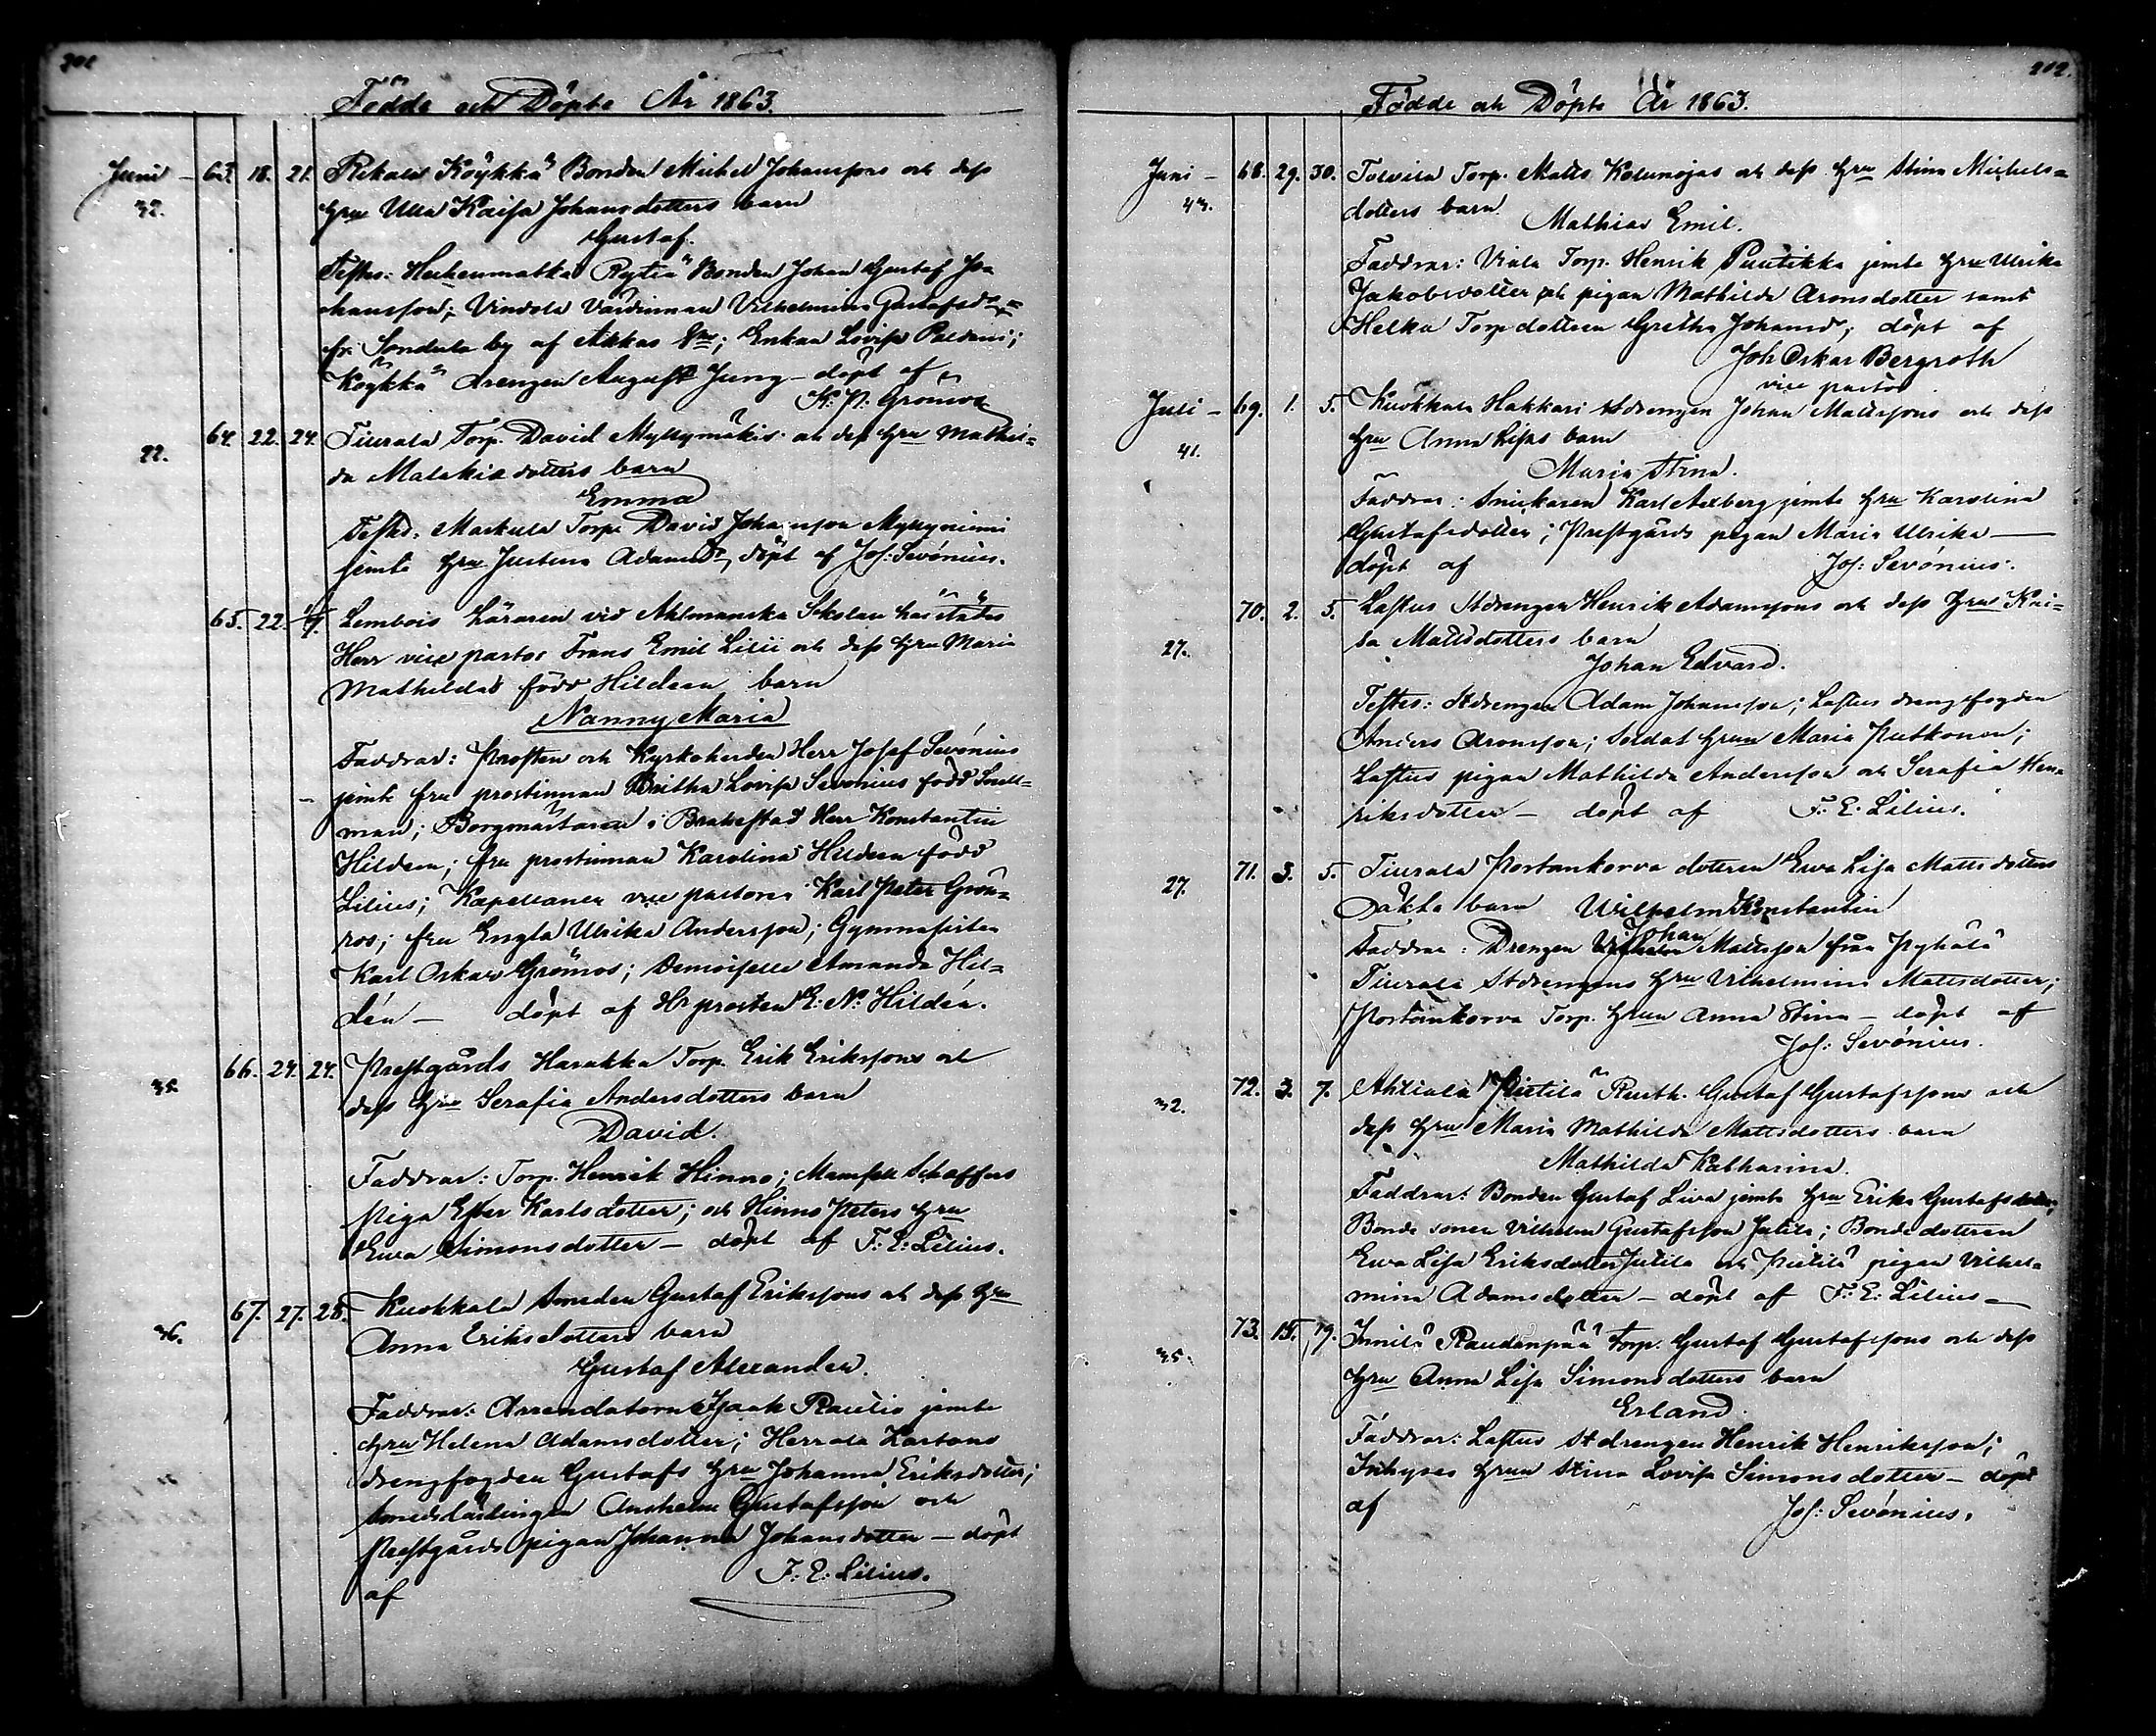 Födde och Döpte År 1863.
Juni – 63. 18. 21. Rikala Köykkä Bonden Michel Johanssons och dess
32.
hru Ulla Kaisa Johansdotters barn
Gustaf.
Testes: Heikenmatka Rytiä Bonden Johan Gustaf Jo-
hansson; Vindola Värdinnan Vilhelmina Gustafsdr
fr. Sondula by af Akkas Sn; Enkan Lovisa Paldani;
Köykkä drengen August Jung – döpt af
K. P. Grönros
64. 22. 24. Tiurala Torp. David Myllymäkis och dess hru Mathil-
22.
da Malakiasdotters barn
Emma
Testes. Markula Torp. David Johansson Myllyniemi
jemte hru Justina Adamsdr, döpt af Jos: Sevónius.
65. 22. Lembois Läraren vid Ahlmanska Skolan härstädes
Herr vice pastor Frans Emil Lilii och dess hru Maria
Mathildas född Hildean barn
Nanny Maria
Faddrar: Prosten och Kyrkoherden Herr Josef Sevónius
jemte fru prostinnan Britha Lovisa Sevonius född Snell-
man; Borgmästaren i Brahestad Herr Konstantin
Hildean; fru prostinnan Karolina Hildean född
Lilius; Kapellanen vice pastorn Karl Peter Grön-
ros; fru Engla Ulrika Andersson; Gymnasisten
Karl Oskar Grönros; Demoiselle Amanda Hil-
dén – döpt af Hr prosten E: N: Hildén.
66. 24. 24. Prestgårds Harakka Torp. Erik Erikssons och
35.
dess hru Serafia Andersdotters barn
David.
Faddrar: Torp. Henrik Hinno; Mamsell Schaffers
Piga Ester Karlsdotter; och Hinno Peters hru
Ewa Simonsdotter – döpt af F: E: Lilius.
67. 27. 28. Kuokkala Smeden Gustaf Erikssons och dess hru
36.
Anna Eriksdotters barn
Gustaf Alexander.
Faddrar: Arrendatorn Isaak Rautio jemte
hru Helena Adamsdotter; Herrala Kartano
drengfogden Gustafs hru Johanna Eriksdotter;
smedslärlingen Anshelm Gustafsson och
Prestgårds pigan Johanna Johansdotter – döpt
af F: E: Lilius.
212.
Födde och Döpte År 1863.
Juni – 68. 29. 30. Tolvila Torp. Matts Kolunojas och dess hru Stina Michels-
43.
dotters barn
Mathias Emil.
Faddrar: Viala Torp. Henrik Puutikka jemte hru Ulrika
Jakobsdotter och pigan Mathilda Aronsdotter samt
Helka Torp dottern Gretha Johansd; döpt af
Joh Oskar Bergroth
vice pastor
Juli – 69. 1. 5. Kuokkala Hakkari stdrengen Johan Mattssons och dess
41.
hru Anna Lisas barn
Maria Stina.
Faddrar: Snickaren Karl Axberg jemte hru Karolina
Gustafsdotter; Prestgårds pigan Maria Ulrika –
döpt af Jos: Sevónius.
70. 2. 5. Laftus Stdrengen Henrik Adamssons och dess hru Kai-
27.
sa Mattsdotters barn
Johan Edvard.
Testes: Stdrengen Adam Johansson; Laftus drengfogden
Anders Aronsson; Soldat hrun Maria Putkonen;
Laftus pigan Mathilda Andersson och Serafia Hen-
riksdotter – döpt af F: E: Lilius.
71. 3. 5. Tiurala Portaankorva dottren Ewa Lisa Mattsdotters
27.
oäkta barn Wilhelm Konstantin
Faddrar: Drengen Johan Mattsson från Pyhälä
Tiurala Stdrengens hru Vilhelmina Mattsdotter;
Portaankorva Torp. hrun Anna Stina – döpt af
Jos: Sevónius.
72. 3. 7. Ahtiala Pietilä Rusth. Gustaf Gustafssons och
32.
dess hru Maria Mathilda Mattsdotters barn
Mathilda Katharina.
Faddrar: Bonden Gustaf Liva jemte hru Erika Gustafsdotter;
Bonde sonen Vilhelm Gustafsson Jutila; Bondedottren
Ewa Lisa Eriksdotter Jutila och Pietilä pigan Vilhel-
mina Adamsdotter – döpt af F: E: Lilius –
73. 15. 19. Innilä Raudanpää Torp. Gustaf Gustafssons och dess
35.
hru Anna Lisa Simonsdotters barn
Erland.
Faddrar: Laftus stdrengen Henrik Henriksson;
Inhyses hrun Stina Lovisa Simonsdotter – döpt
af Jos: Sevónius.